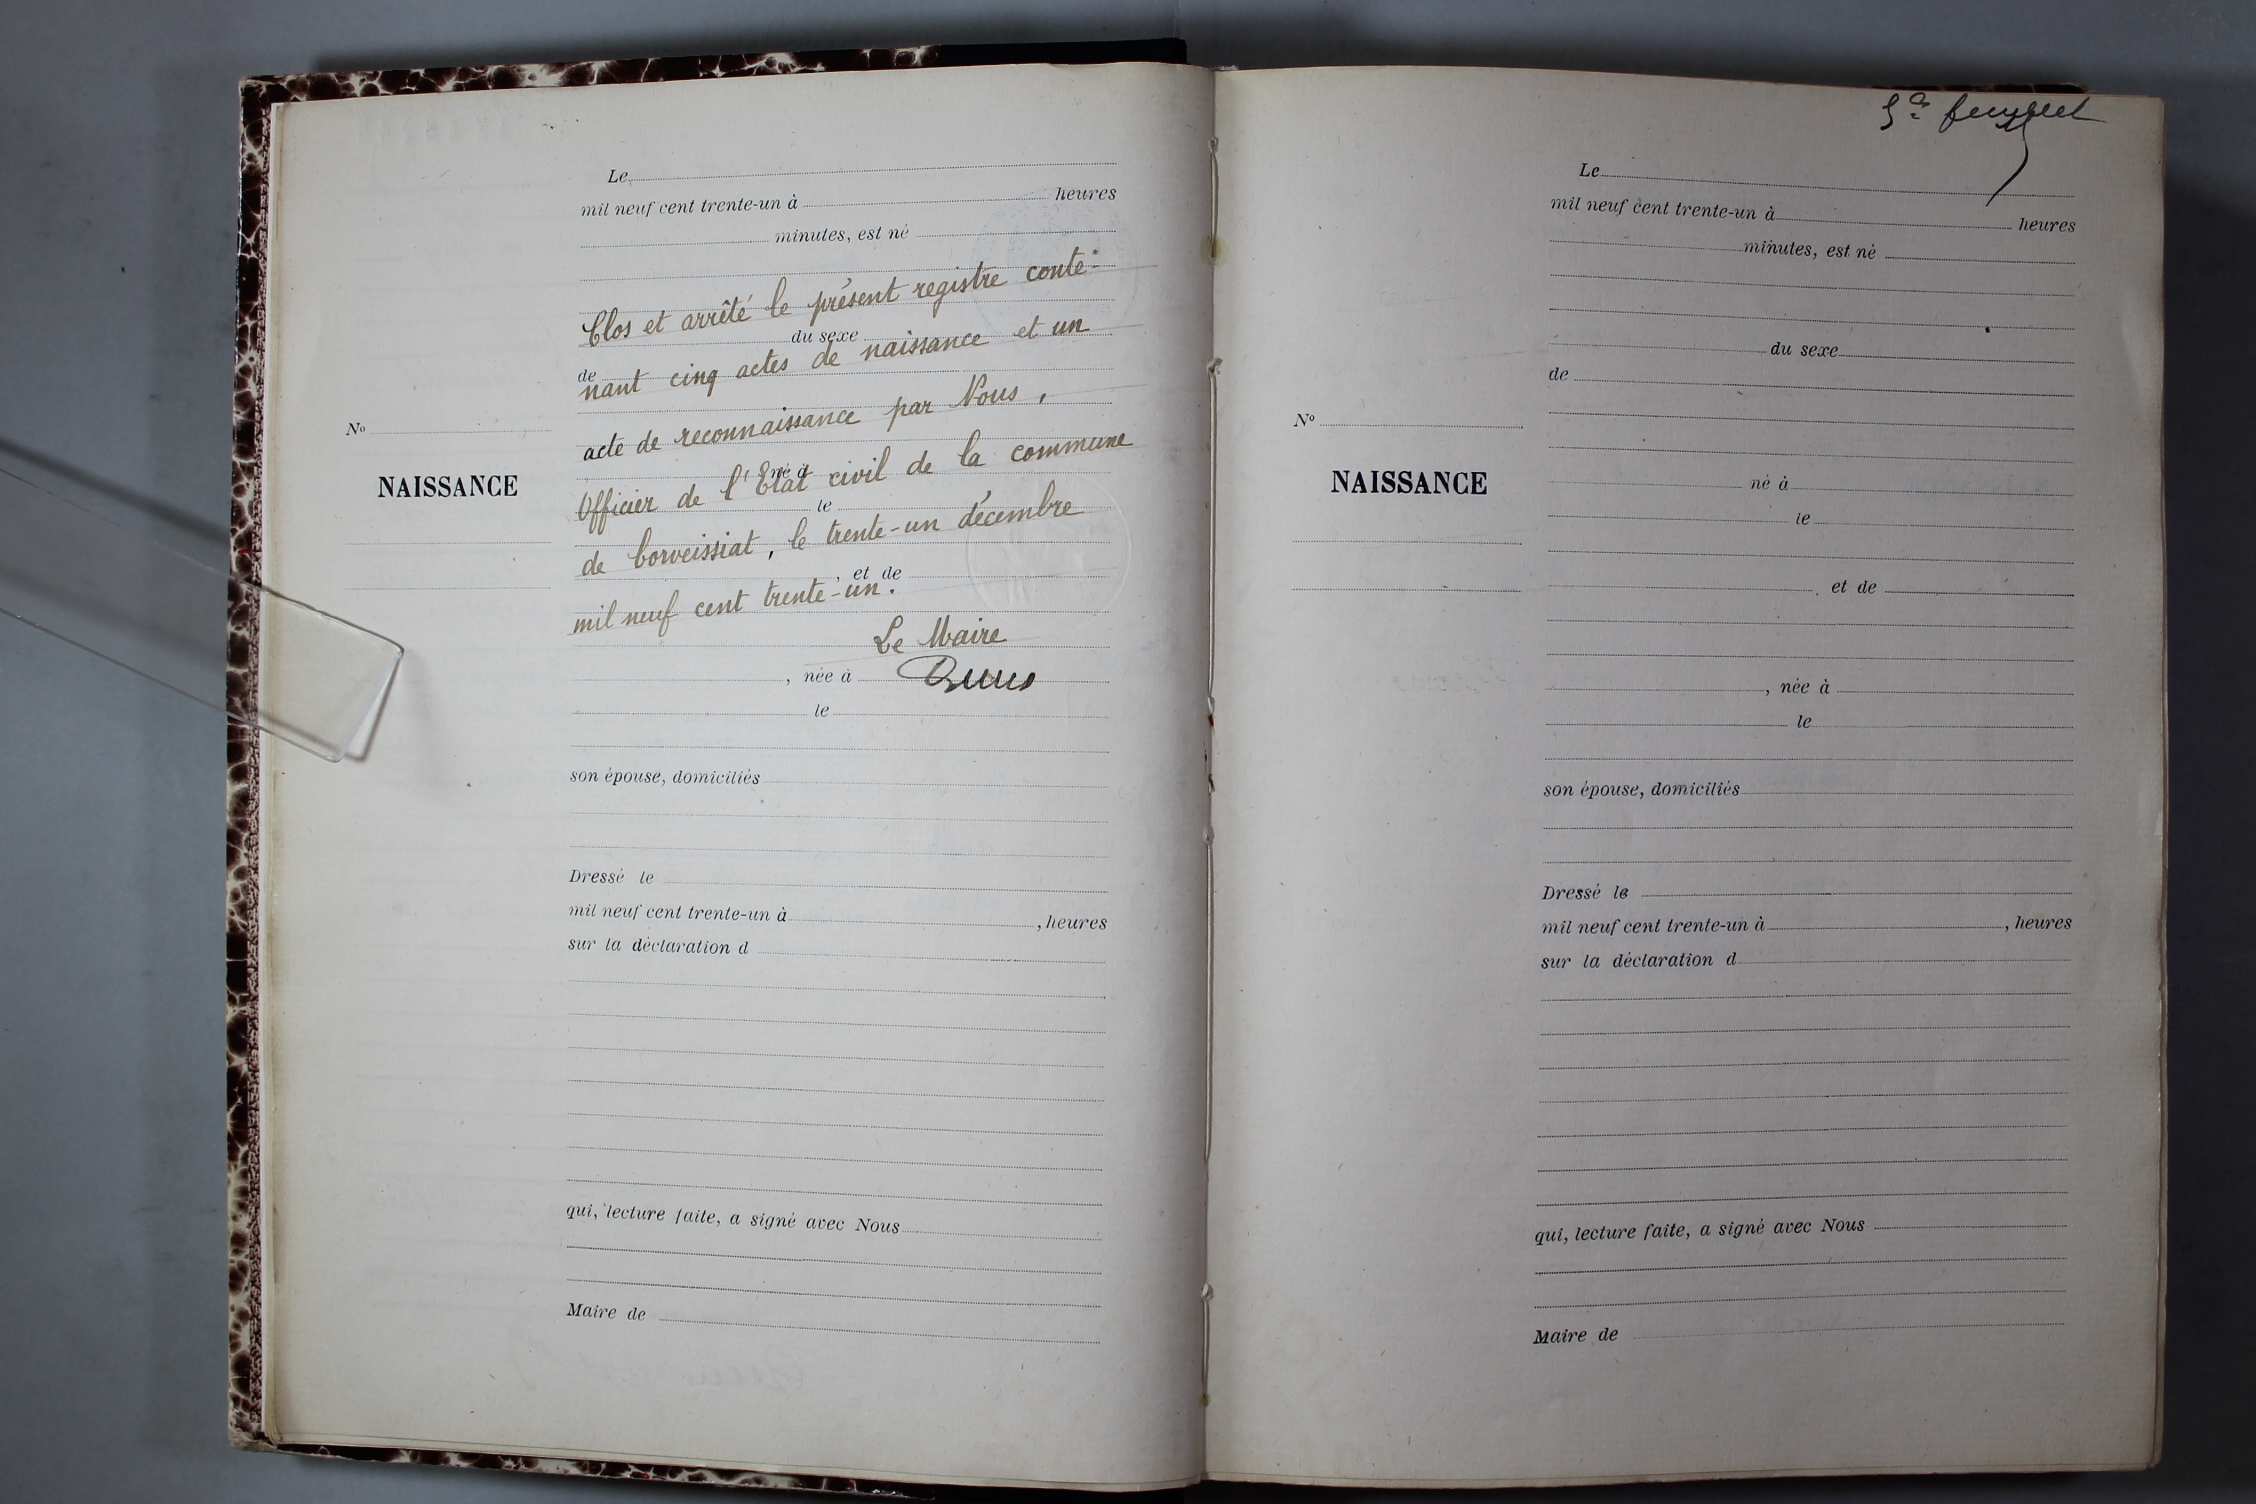 Le
mil neuf cent trente-un à heures
minutes, est né
Clos et arrêté le présent registre conte-
du sexe
de
nant cinq actes de naissance et un
acte de reconnaissance par Nous,
né à
Officier de l'Etat civil de la commune
le
de Corveissiat, le trente-un décembre
, et de
mil neuf cent trente-un.
Le Maire
, née à
le
son épouse, domiciliés
Dressé le
mil neuf cent trente-un à , heures
sur la déclaration d
qui, lecture faite, a signé avec Nous
Maire de
No
NAISSANCE
Le
mil neuf cent trente-un à heures
minutes, est né
du sexe
de
né à
le
, et de
, née à
le
son épouse, domiciliés
Dressé le
mil neuf cent trente-un à , heures
sur la déclaration d
qui, lecture faite, a signé avec Nous
Maire de
No
NAISSANCE